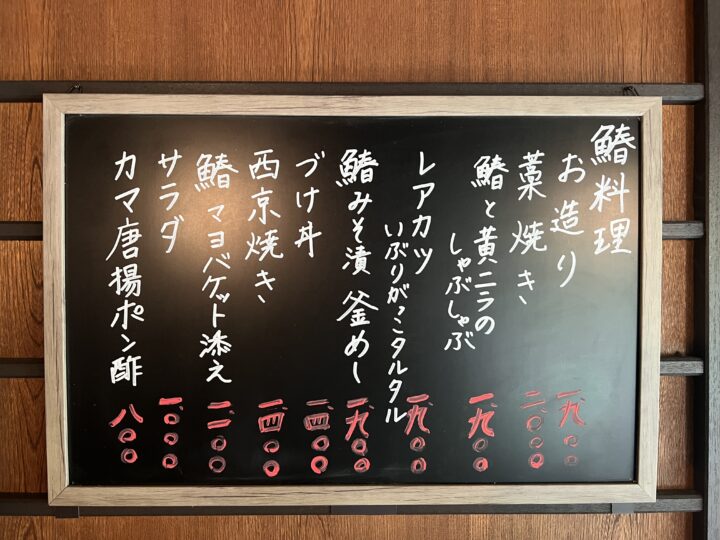 鰆料理
お造り 一、九〇〇
藁焼き 二、〇〇〇
鰆と黄ニラの
しゃぶしゃぶ 一、九〇〇
レアカツ
いぶりがっこタルタル 一、九〇〇
鰆みそ漬 釜めし 一、九〇〇
づけ丼 一、四〇〇
西京焼き 一、四〇〇
鰆マヨバケット添え 一、二〇〇
サラダ 一、〇〇〇
カマ唐揚ポン酢 八〇〇